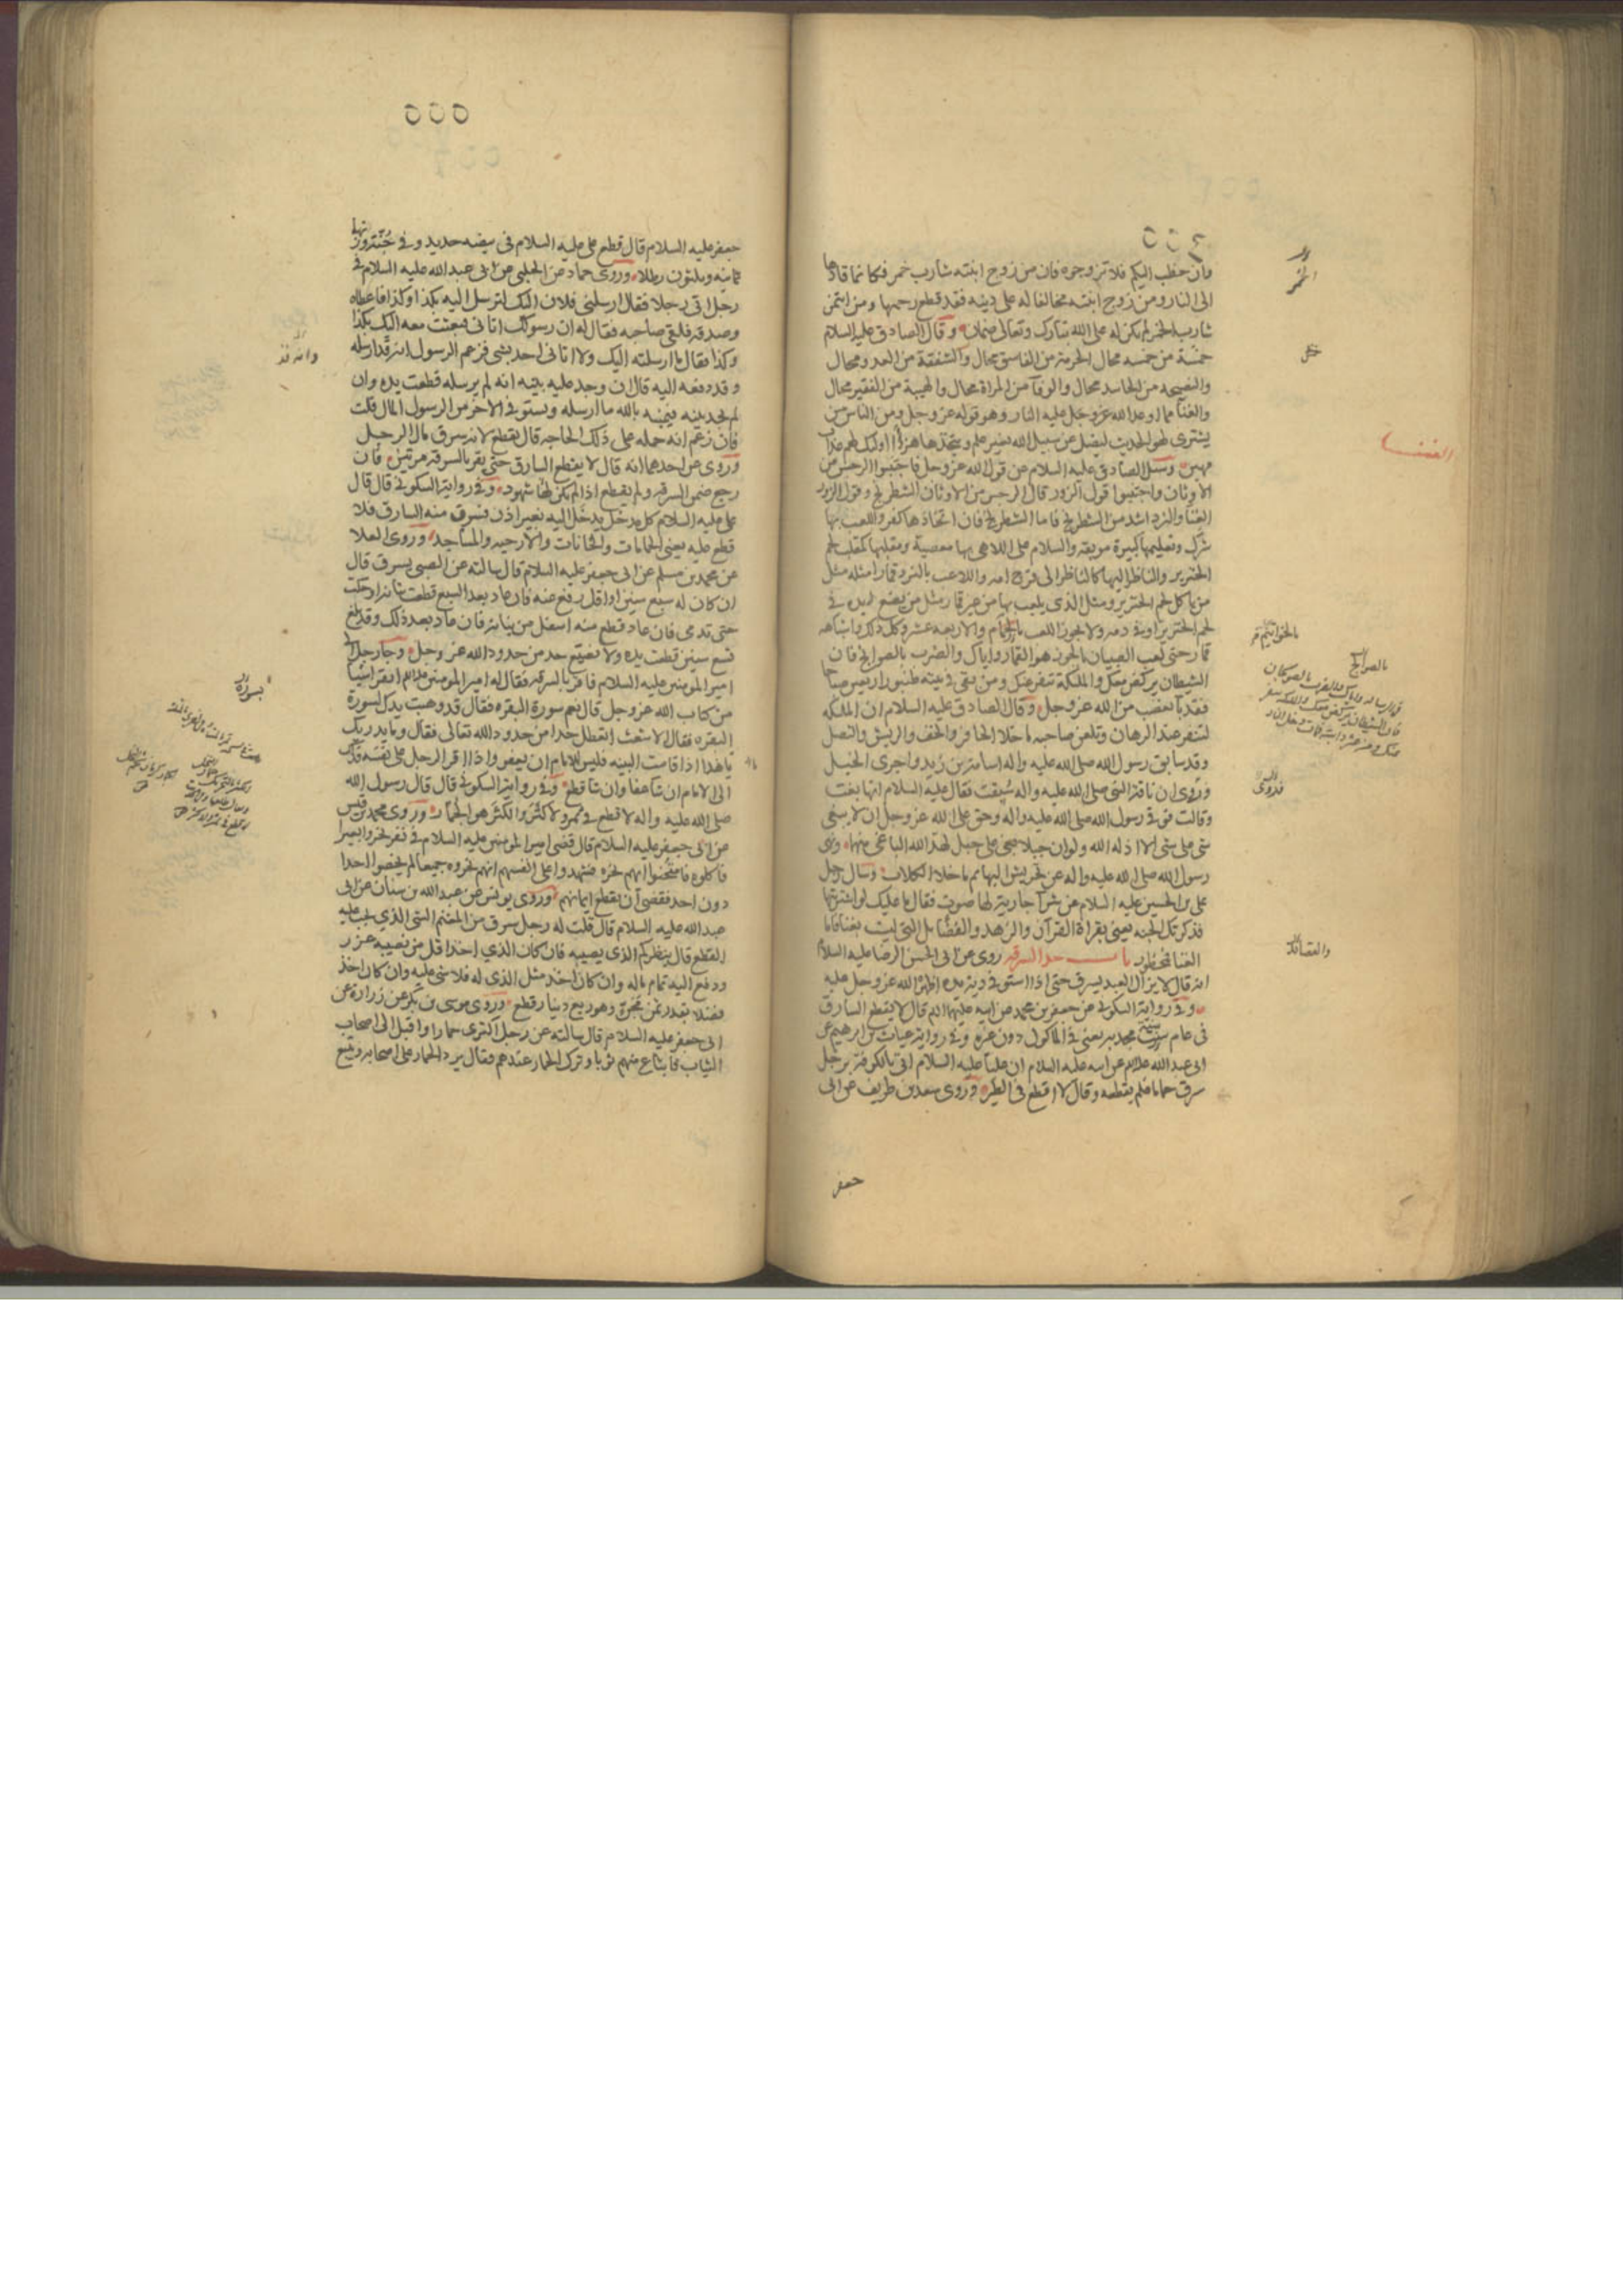 ٥٥٤
فان خطب اليكم فلا تزوجوه فان من زوج ابنته شارب خمر فكانما قادها
الى النار ومن زوج ابنته مخالفا له على دينه فقد قطع رحمها ومن ائتمن
شارب الخمر لم يكن له على الله تبارك وتعالى ضمان وقال الصادق عليه السلام
خمسة من خمسه محال الحرمة من الفاسق محال والشفقة من العدو محال
والنصيحه من الحاسد محال والوفا من المراة محال والهيبة من الفقير محال
والغنا مما اوعد الله عز وجل عليه النار وهو قوله عز وجل ومن الناس من
يشترى لهو الحديث ليضل عن سبيل الله بغير علم ويتخذها هزوا اولئك لهم عذاب
مهين وسئل الصادق عليه السلام عن قول الله عز وجل فاجتنبوا الرجس من
الاوثان واجتنبوا قول الزور قال الرجس من الاوثان الشطرنج وقول الزور
الغنا والنرد اشد من الشطرنج فاما الشطرنج فان اتخاذها كفر واللعب بها
شرك وتعليمها كبيرة موبقه والسلام على اللاهى بها معصية ومقلبها كمقلب لحم
الخنزير والناظر اليها كالناظر الى فرج امه واللاعب بالنرد قمارا مثله مثل
من ياكل لحم الخنزير ومثل الذى يلعب بها من غير قمار مثل من يضع يده فى
لحم الخنزير او فى دمه ولا يجوز اللعب بالخواتيم والاربعه عشر وكل ذلك واشباهه
قمار حتى لعب الصبيان بالجوز هو القمار واياك والضرب بالصوانج فان
الشيطان يركض معك والملئكة تنفر عنك ومن بقى فى بيته طنبور اربعين صباحا
فقد باء بغضب من الله عز وجل وقال الصادق عليه السلام ان الملئكه
لتنفر عند الرهان وتلعن صاحبه ما خلا الحافر والخف والريش والنصل
وقد سابق رسول الله صلى الله عليه واله اسامة بن زيد واجرى الخيل
وروى ان ناقة النبى صلى الله عليه واله سبقت فقال عليه السلام انها بغت
وقالت فوقى رسول الله صلى الله عليه واله وحق على الله عز وجل ان لا يبغى
شى على شى الا اذله الله ولو ان جبلا بغى على جبل لهد الله الباغى منهما ونهى
رسول الله صلى الله عليه واله عن تحريش البهائم ما خلا الكلاب وسال رجل
على بن الحسين عليه السلام عن شرا جارية لها صوت فقال ما عليك لو اشتريتها
فذكرتك الجنه يعنى بقراة القرآن والزهد والفضايل التى ليست بغنا فاما
الغنا فمحظور باب حد السرقه روى عن ابى الحسن الرضا عليه السلام
انه قال لا يزال العبد يسرق حتى اذا استوفى دية يده اظهر الله عز وجل عليه
وفى رواية السكونى عن جعفر بن محمد عن ابيه عليهما السلم قال لا يقطع السارق
فى عام سنة مجدبه يعنى فى الماكول دون غيره وفى رواية غياث بن ابرهيم عن
ابى عبد الله عن ابيه عليه السلام ان عليا عليه السلام اتى بالكوفة برجل
سرق حماما فلم يقطعه وقال لا اقطع فى الطير وروى سعد بن طريف عن ابى
جعفر
الخمر
الغنا
بالخواتيم
بالصوانج
فروى
والقصائد
٥٥٥
جعفر عليه السلام قال قطع على عليه السلام فى بيضه حديد وفى جنة وزنها
ثمانيه وثلثون رطلا وروى حماد عن الحلبى عن ابى عبد الله عليه السلام فى
رجل اتى رجلا فقال ارسلنى فلان اليك لترسل اليه بكذا وكذا فاعطاه
وصدقه فلقى صاحبه فقال له ان رسولك اتانى فبعثت معه اليك بكذا
وكذا فقال ما ارسلته اليك ولا اتانى احد بشى فزعم الرسول انه قد ارسله
وقد دفعه اليه قال ان وجد عليه بينه انه لم يرسله قطعت يده وان
لم يجد بينه فيمينه بالله ما ارسله ويستوفى الاخر من الرسول المال قلت
فان زعم انه حمله على ذلك الحاجه قال يقطع لانه سرق مال الرجل
وروى عن احدهما انه قال لا يقطع السارق حتى يقر بالسرقه مرتين فان
رجع ضمن السرقه ولم يقطع اذا لم يكن له شهود وفى رواية السكونى قال قال
على عليه السلام كل مدخل يدخل اليه بغير اذن فسرق منه السارق فلا
قطع عليه يعنى الحمامات والخانات والارحيه والمساجد وروى العلا
عن محمد بن مسلم عن ابى جعفر عليه السلام قال سالته عن الصبى يسرق قال
ان كان له سبع سنين او اقل رفع عنه فان عاد بعد السبع قطعت بنانه او حكت
حتى تدمى فان عاد قطع منه اسفل من بنانه فان عاد بعد ذلك وقد بلغ
تسع سنين قطعت يده ولا يضيع حد من حدود الله عز وجل وجا رجل الى
امير المومنين عليه السلام فاقر بالسرقه فقال له امير المومنين اتقرا شيا
من كتاب الله عز وجل قال نعم سورة البقره فقال قد وهبت يدك لسورة
البقره فقال الاشعث اتعطل حدا من حدود الله تعالى فقال وما يدريك
ما هذا اذا قامت البينه فليس للامام ان يعفو واذا اقر الرجل على نفسه فذاك
الى الامام ان شا عفا وان شا قطع وفى رواية السكونى قال قال رسول الله
صلى الله عليه واله لا قطع فى ثمر ولا كثر والكثر هو الجمار وروى محمد بن قيس
عن ابى جعفر عليه السلام قال قضى امير المومنين عليه السلام فى نفر نحروا بعيرا
فاكلوه فامتحنوا ايهم نحره فشهدوا على انفسهم انهم نحروه جميعا لم يخصوا احدا
دون احد فقضى ان يقطع ايمانهم وروى يونس عن عبد الله بن سنان عن ابى
عبد الله عليه السلام قال قلت له رجل سرق من المغنم الشى الذى يجب عليه
القطع قال ينظر كم الذى يصيبه فان كان الذى اخذ اقل من نصيبه عزر
ودفع اليه تمام ماله وان كان اخذ مثل الذى له فلا شى عليه وان كان اخذ
فضلا بقدر ثمن مجن وهو ربع دينار قطع وروى موسى بن بكر عن زرارة عن
ابى جعفر عليه السلام قال سالته عن رجل اكترى حمارا واقبل الى اصحاب
الثياب فابتاع منهم ثوبا وترك الحمار عندهم فقال يرد الحمار على اصحابه ويتبع
وانه قد
بسورة